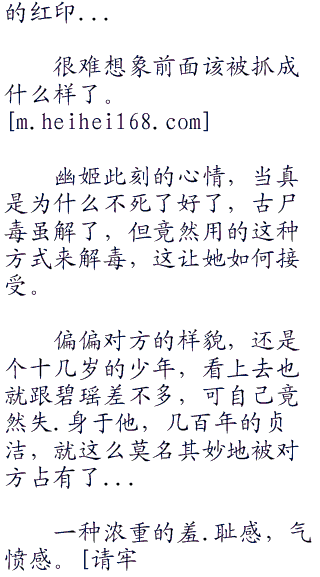 的红印...
很难想象前面该被抓成
什么样了。
[m.heihei168.com]
幽姬此刻的心情，当真
是为什么不死了好了，古尸
毒虽解了，但竟然用的这种
方式来解毒，这让她如何接
受。
偏偏对方的样貌，还是
个十几岁的少年，看上去也
就跟碧瑶差不多，可自己竟
然失.身于他，几百年的贞
洁，就这么莫名其妙地被对
方占有了...
一种浓重的羞.耻感，气
愤感。[请牢